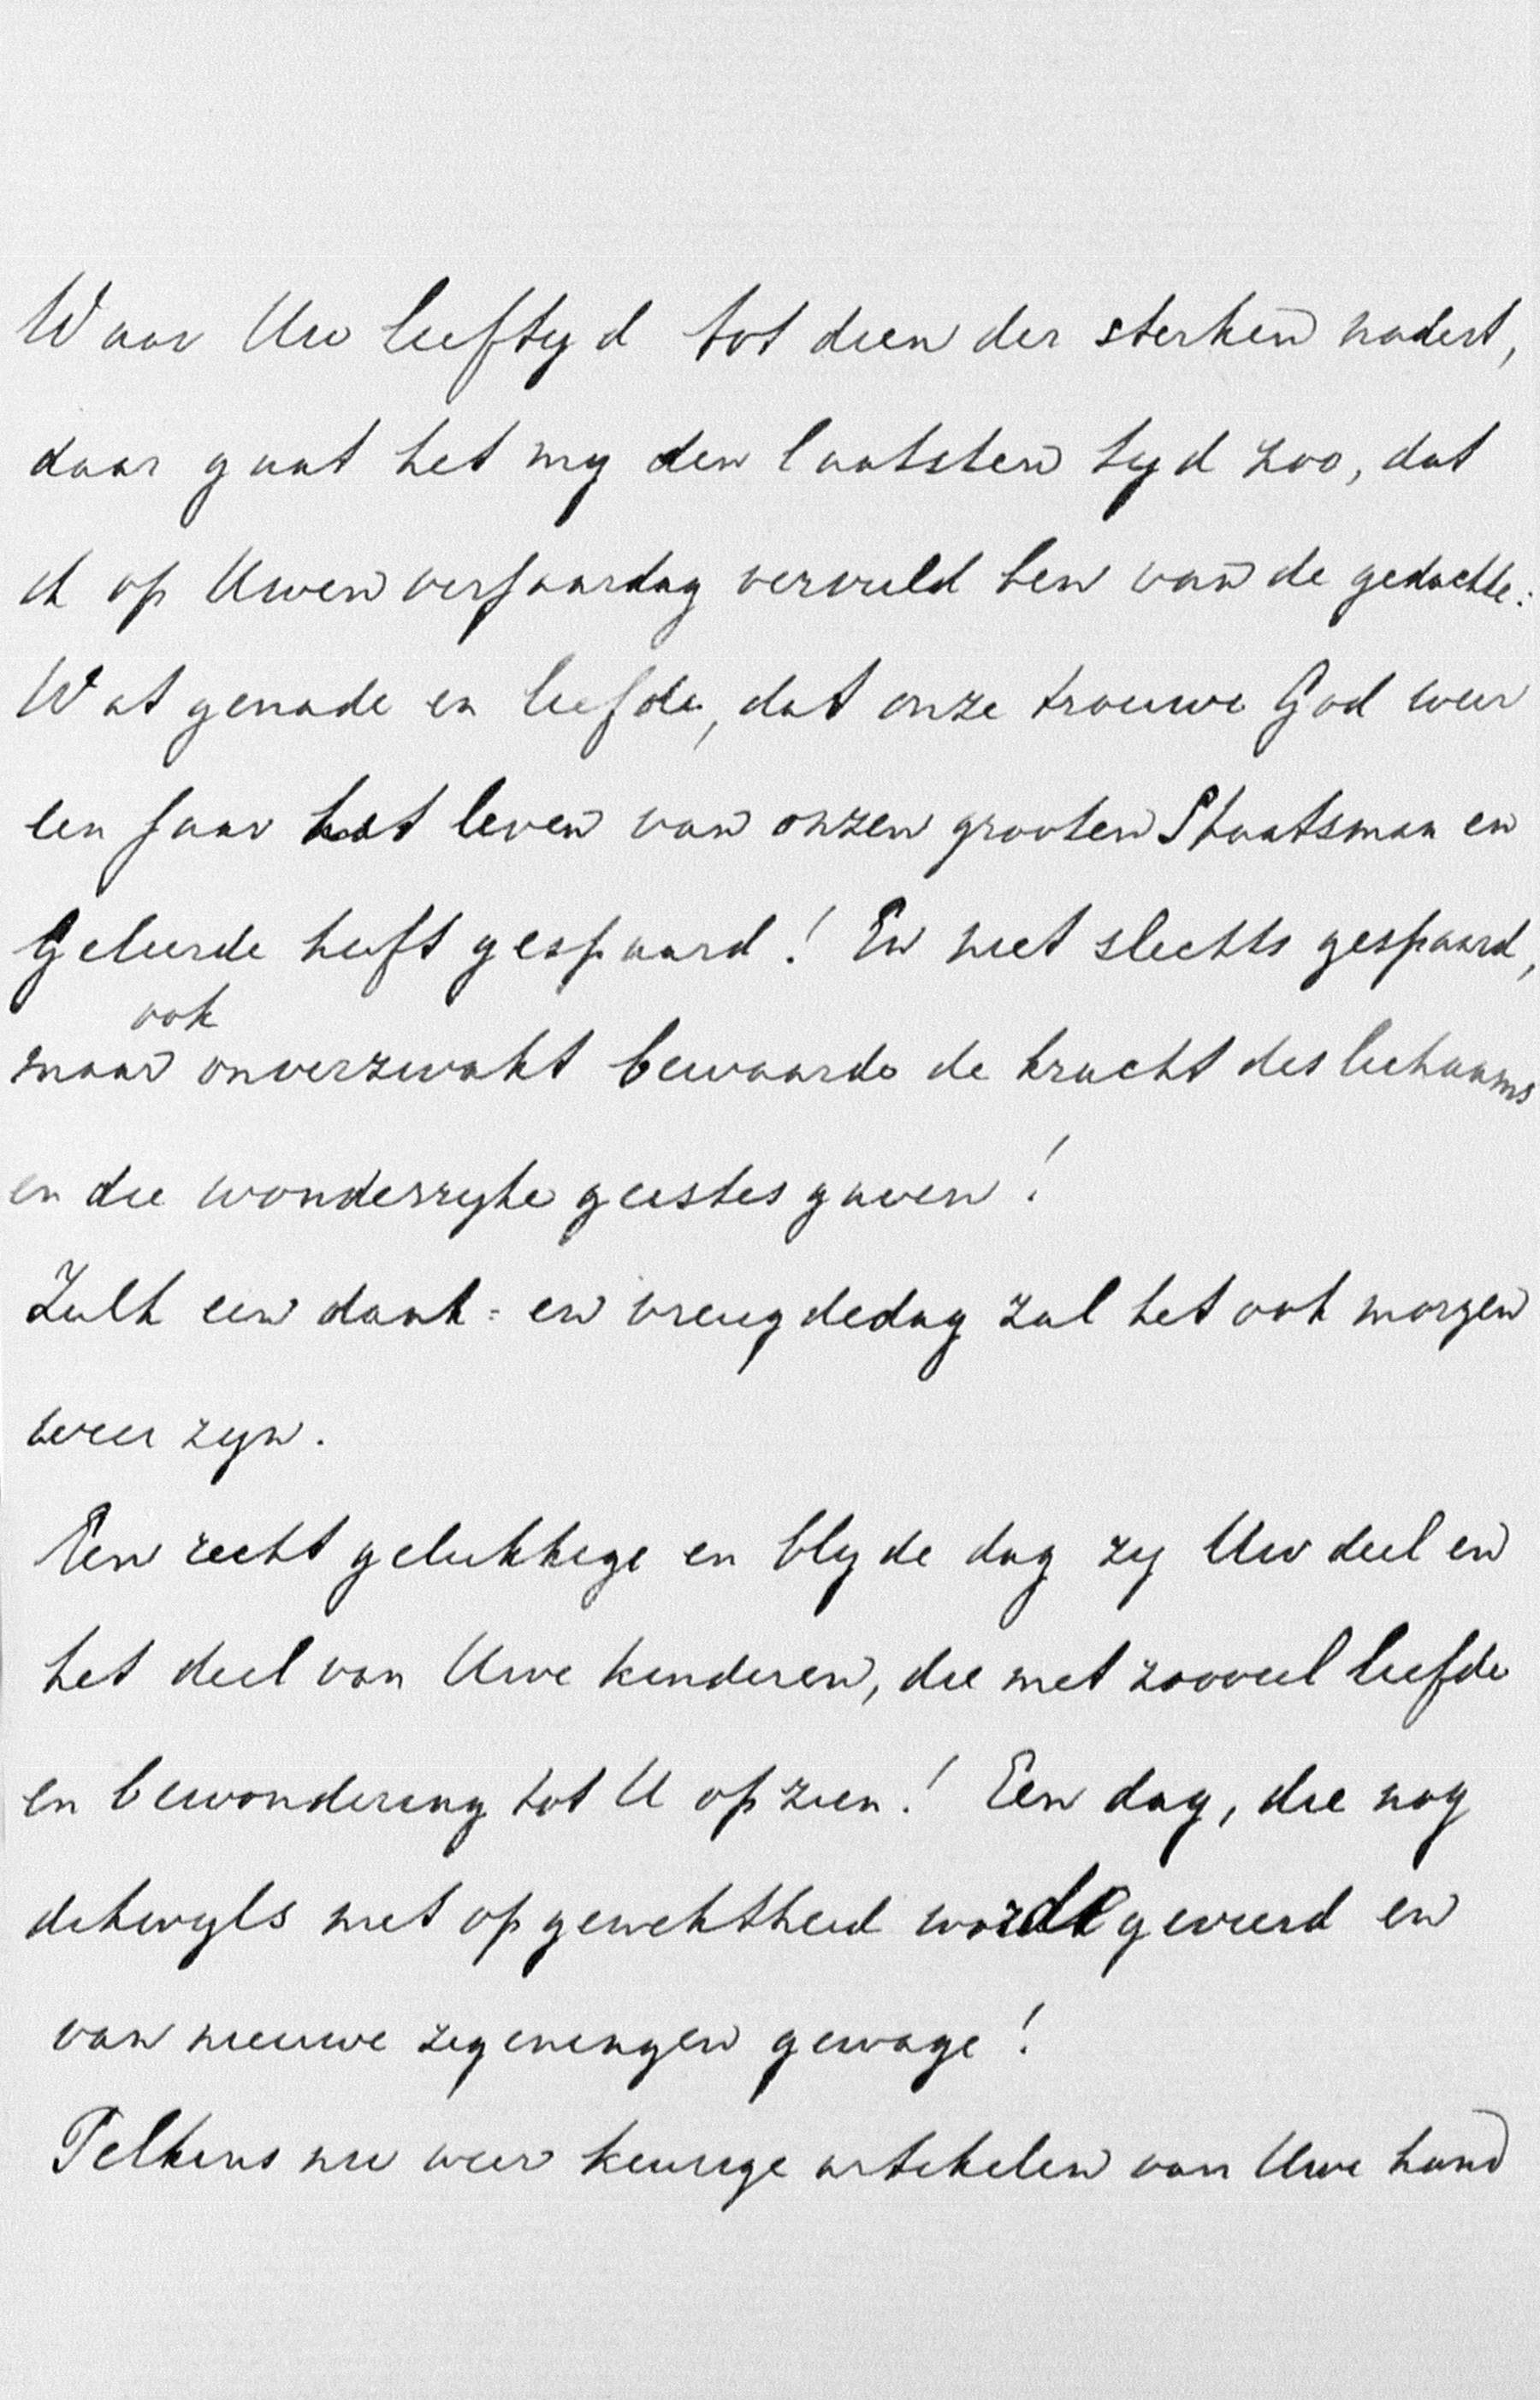 Waar Uw leeftyd tot dien der sterken nadert,
daar gaat het my den laatsten tyd zoo, dat
ik op Uwen verjaardag vervuld ben van de gedachte:
Wat genade en liefde, dat onze trouwe God weer
een jaar het leven van onzen grooten Staatsman en
Geleerde heeft gespaard! En niet slechts gespaard,
ook
maar onverzwakt bewaarde de kracht des lichaams
en die wonderryke geestesgaven!
Zulk een dank- en vreugdedag zal het ook morgen
weer zyn.
Een recht gelukkige en blyde dag zy Uw deel en
het deel van Uwe kinderen, die met zooveel liefde
en bewondering tot U opzien! Een dag, die nog
dikwyls met opgewektheid worde gevierd en
van nieuwe zegeningen gewage!
Telkens nu weer keurige artikelen van Uwe hand